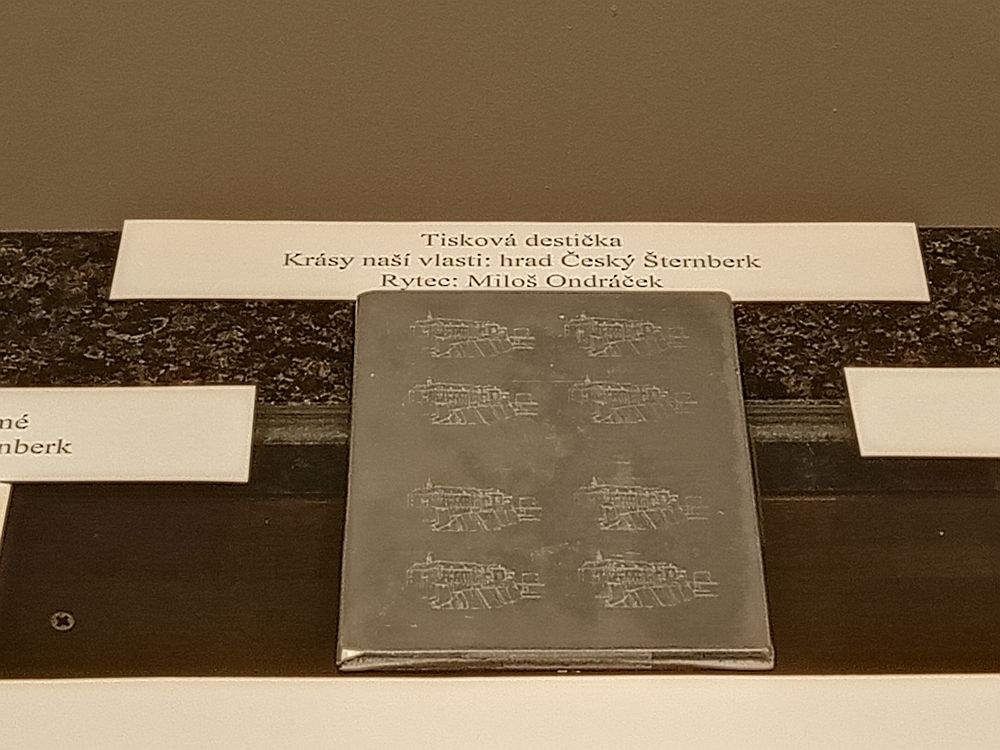 Tisková destička
Krásy naší vlasti: hrad Český Šternberk
Rytec: Miloš Ondráček